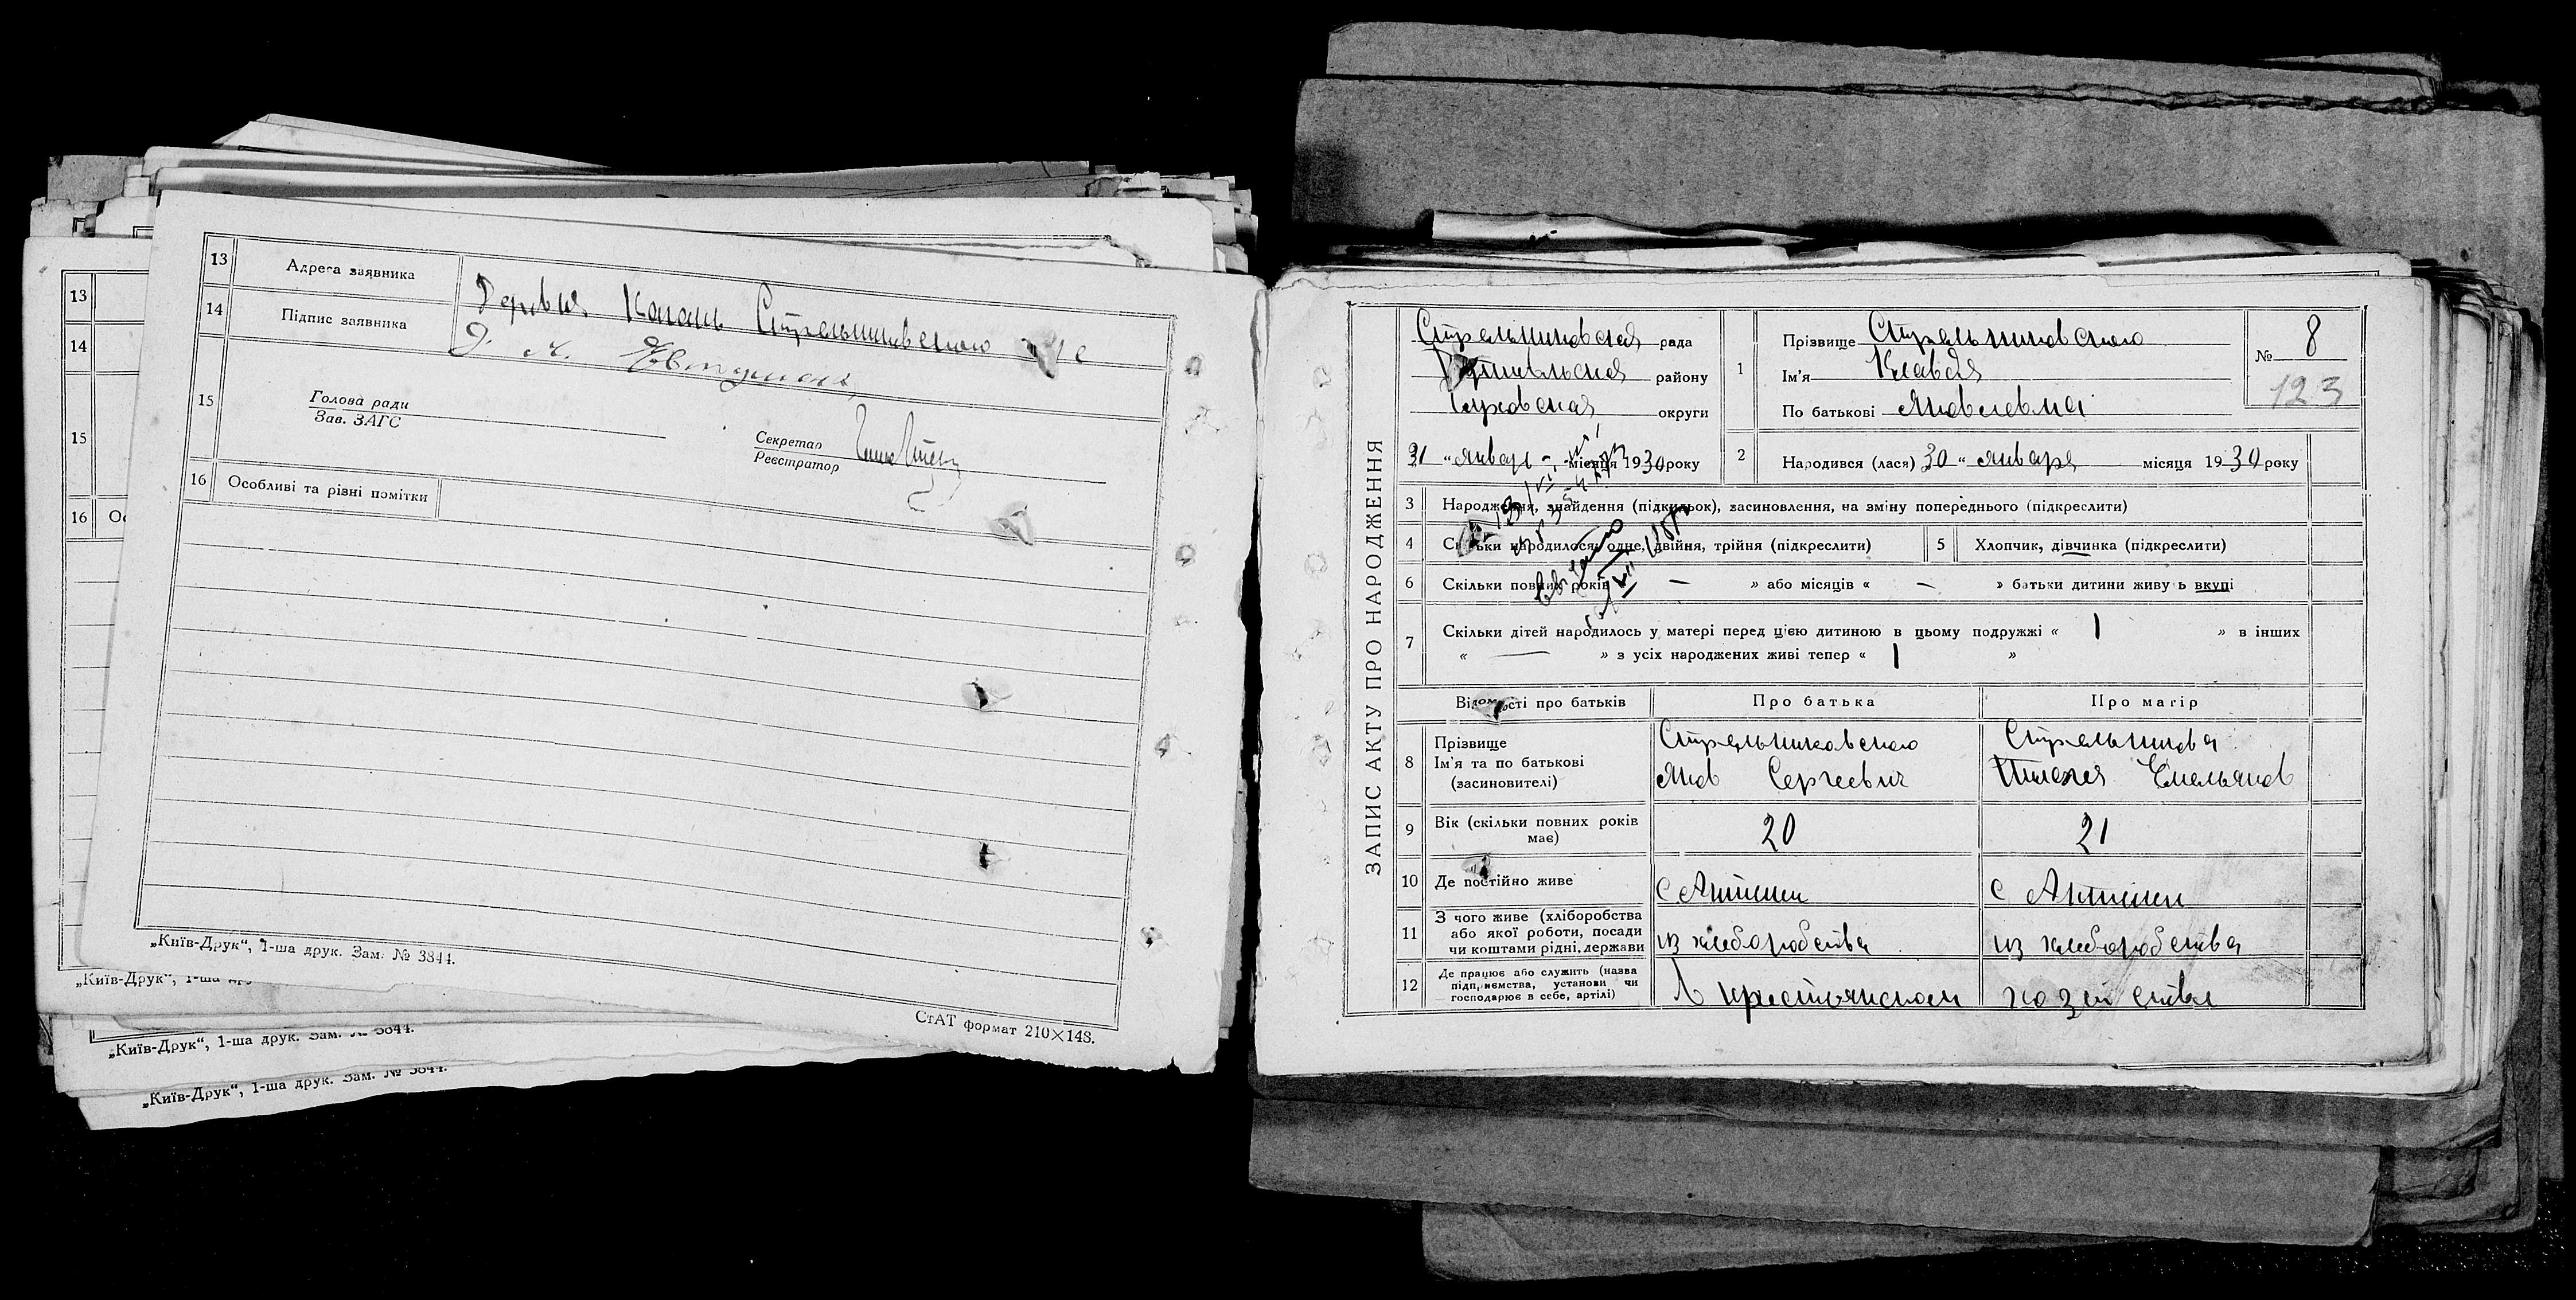 13 Адреса заявника Деревня Стрельниковского
14 Підпис заявника
15 Голова ради
Зав. ЗАГС
Секретар
Реєстратор
16 Особливі та різні помітки
„Київ-Друк“, 1-ша друк. Зам. № 3844.
СтАТ формат 210×148.
13
14
15
16
„Київ-Друк“, 1-ша
„Київ-Друк“, 1-ша друк. Зам. № 3844.
„Київ-Друк“, 1-ша друк. Зам. № 3844.
ЗАПИС АКТУ ПРО НАРОДЖЕННЯ
Стрельниковская рада
району
округи
31 „Январ місяця 1930 року
1 Прізвище Стрельниковского
Ім'я Клавдя
По батькові Яковлевна
№ 8
123
2 Народився (лася) 30 „ января місяця 1930 року
3 Народження, знайдення (підкидьок), засиновлення, на зміну попереднього (підкреслити)
4 Скільки народилося: одне, двійня, трійня (підкреслити) 5 Хлопчик, дівчинка (підкреслити)
6 Скільки повних років — » або місяців « — » батьки дитини живуть вкупі
7 Скільки дітей народилось у матері перед цією дитиною в цьому подружжі « 1 » в інших
« — » з усіх народжених живі тепер « 1 »
Відомості про батьків Про батька Про матір
8 Прізвище Стрельниковского Стрельникова
Ім'я та по батькові Яков Сергеевич Емельянов
(засиновителі)
9 Вік (скільки повних років має) 20 21
10 Де постійно живе с с
11 З чого живе (хліборобства або якої роботи, посади чи коштами рідні, держави из хлеборобства из хлеборобства
12 Де працює або служить (назва підприємства, установи чи господарює в себе, артілі) в крестьянском хозяйстве